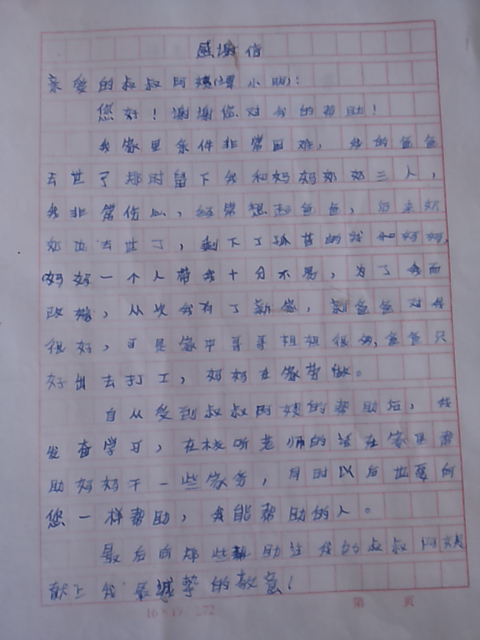 感谢信
亲爱的叔叔阿姨(谭小明):
您好！谢谢您对我的帮助！
我家里条件非常困难，我的爸爸
去世了那时留下我和妈妈奶奶三人，
我非常伤心，经常想起爸爸，后来奶
奶也去世了，剩下了孤苦的我和妈妈，
妈妈一个人带我十分不易，为了我而
改嫁，从此我有了新家，新爸爸对我
很好，可是家中哥哥姐姐很多，爸爸只
好出去打工，妈妈在家劳做。
自从受到叔叔阿姨的帮助后，我
发奋学习，在校听老师的话在家里帮
助妈妈干一些家务，同时以后也要向
您一样帮助，我能帮助的人。
最后向那些帮助过我的叔叔阿姨
献上我最诚挚的敬意！
第 页